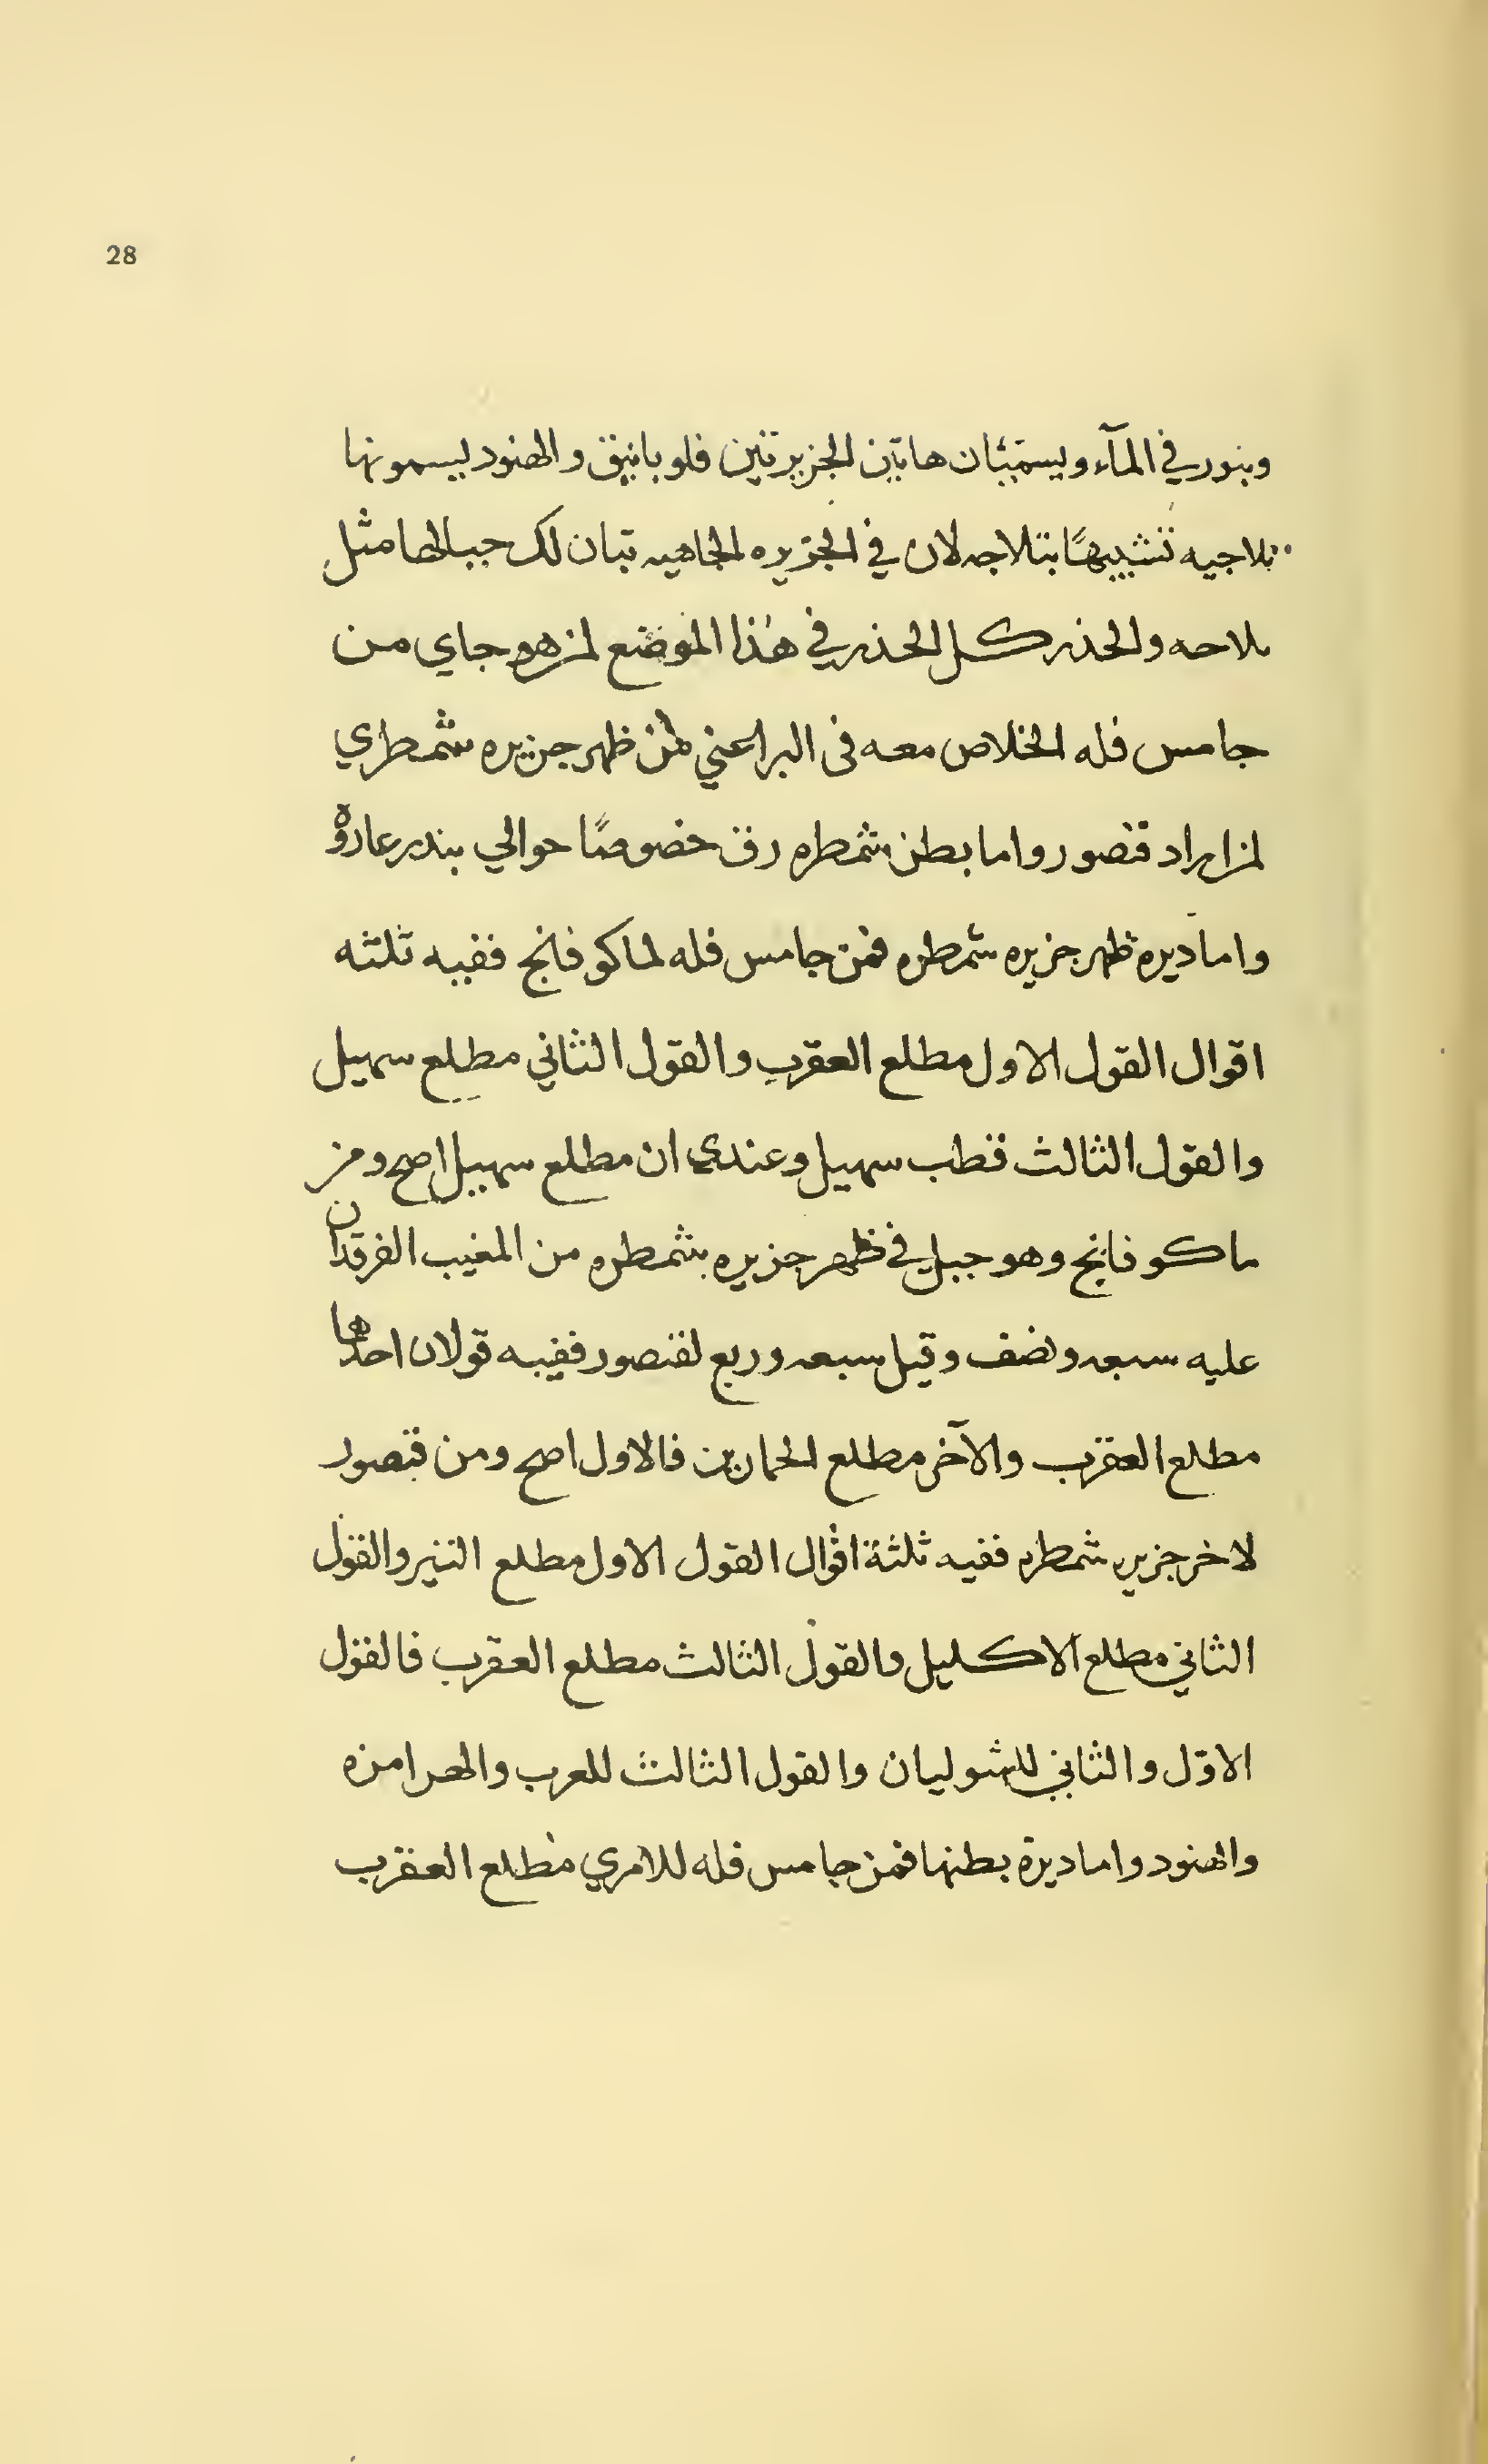 28
وبنور في المآء ويسمتيان هاتين الجزيرتين فلو بانيق والهنود يسمونها
بلاجيه تشبيهًا بتلاجه لان في الجزيره الجاهيه تبان لك جبالها مثل
بلاحه والحذر كل الحذر في هذا الموضع لمن هو جاي من
جامس فله الخلاص معه فى البر اعني لمن ظهر جزيره شمطري
لمن اراد فنصور واما بطن شمطره رق خصوصًا حوالي بندر عاروة
واما ديره ظهر جزيره شمطره فمن جامس فله لماكو فانج ففيه ثلثه
اقوال القول الاول مطلع العقرب والقول الثاني مطلع سهيل
والقول الثالث قطب سهيل وعندي ان مطلع سهيل اصح ومن
ماكو فانج وهو جبل في ظهر جزيره شمطره من المغيب الفرقدان
عليه سبعه ونصف وقيل سبعه وربع لفنصور ففيه قولان احدها
مطلع العقرب والآخر مطلع الحمارين فالاول اصح ومن فنصور
لاخر جزيره شمطره ففيه ثلثة اقوال القول الاول مطلع التير والقول
الثاني مطلع الاكليل والقول الثالث مطلع العقرب فالقول
الاوّل والثاني للشوليان والقول الثالث للعرب والهرامزه
والهنود واما ديرة بطنها فمن جامس فله للامري مطلع العقرب